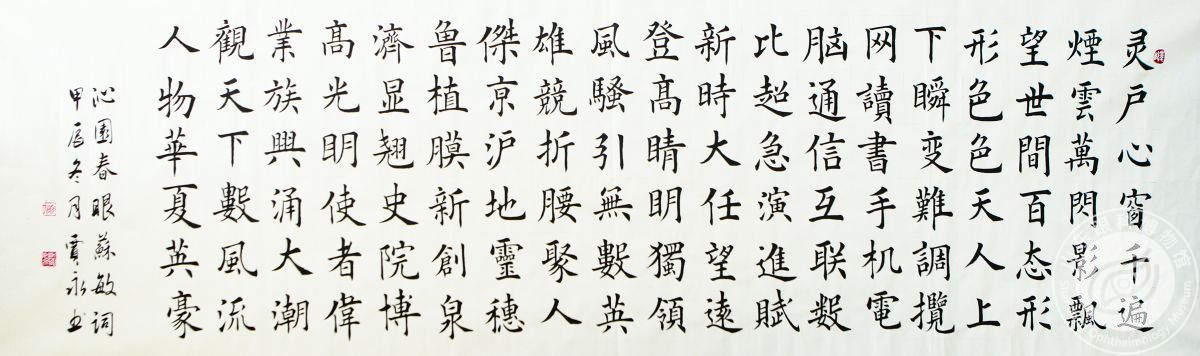 灵戶心窗千遍
煙雲萬閃影飄
望世間百态形
形色色天人上
下瞬变難調攬
网讀書手机電
脑通信互联数
比超急演進賦
新時大任望遠
登髙睛明獨領
風騷引無數英
雄競折腰聚人
傑京沪地靈穗
鲁植膜新創泉
濟显翘史院博
髙光明使者偉
業族興涌大潮
觀天下數風流
人物華夏英豪
沁園春眼蘇敏詞
甲辰冬月賈永书
Ophthalmology Museum